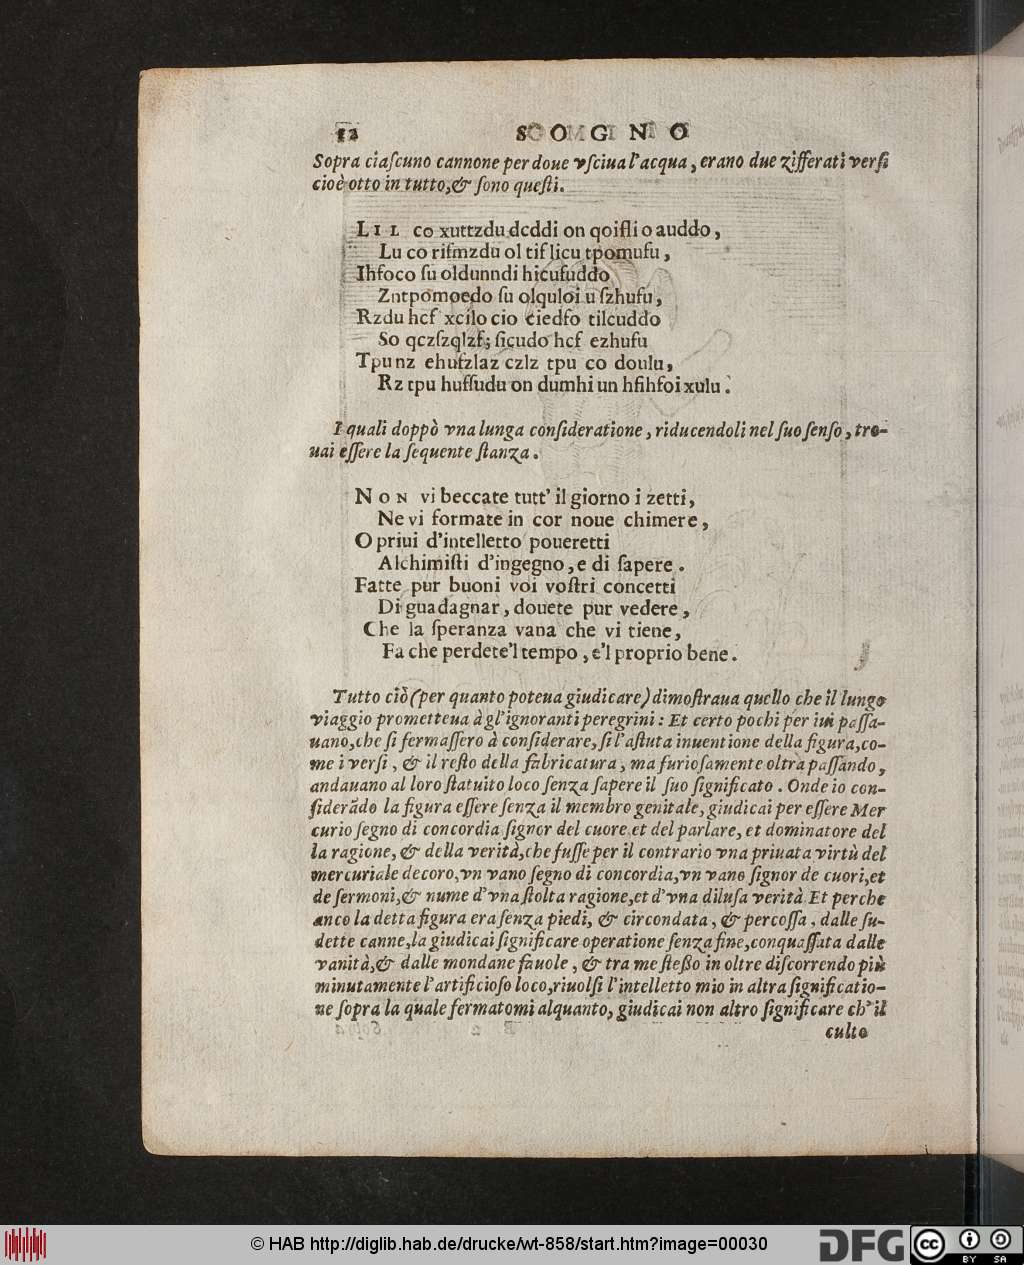 12 SOGNO
Sopra ciaſcuno cannone per doue vſciua l'acqua, erano due zifferati verſi
cioè otto in tutto, & ſono queſti.
LIL co xuttzdu dcddi on qoifli o auddo,
Lu co riſmzdu ol tif licu tpomufu,
Ihfoco ſu oldunndi hicufuddo
Zntpomoedo ſu olquloi u ſzhufu,
Rzdu hcf xcilo cio ciedfo tilcuddo
So qczſzqlzf; ſicudo hcf ezhufu
Tpunz ehufzlaz czlz tpu co doulu,
Rz tpu huffudu on dumhi un hfihfoi xulu.
I quali doppò vna lunga conſideratione, riducendoli nel ſuo ſenſo, tro-
uai eſſere la ſequente ſtanza.
NON vi beccate tutt' il giorno i zetti,
Ne vi formate in cor noue chimere,
O priui d'intelletto poueretti
Alchimiſti d'ingegno, e di ſapere.
Fatte pur buoni voi voſtri concetti
Di guadagnar, douete pur vedere,
Che la ſperanza vana che vi tiene,
Fa che perdete'l tempo, e'l proprio bene.
Tutto ciò (per quanto poteua giudicare) dimoſtraua quello che il lungo
viaggio prometteua à gl'ignoranti peregrini: Et certo pochi per iui paſſa-
uano, che ſi fermaſſero à conſiderare, ſi l'aſtuta inuentione della figura, co-
me i verſi, & il reſto della fabricatura, ma furioſamente oltra paſſando,
andauano al loro ſtatuito loco ſenza ſapere il ſuo ſignificato. Onde io con-
ſiderãdo la figura eſſere ſenza il membro genitale, giudicai per eſſere Mer
curio ſegno di concordia ſignor del cuore et del parlare, et dominatore del
la ragione, & della verità, che fuſſe per il contrario vna priuata virtù del
mercuriale decoro, vn vano ſegno di concordia, vn vano ſignor de cuori, et
de ſermoni, & nume d'vna ſtolta ragione, et d'vna diluſa verità Et perche
anco la detta figura era ſenza piedi, & circondata, & percoſſa, dalle ſu-
dette canne, la giudicai ſignificare operatione ſenza fine, conquaſſata dalle
vanità, & dalle mondane fauole, & tra me ſteßo in oltre diſcorrendo più
minutamente l'artificioſo loco, riuolſi l'intelletto mio in altra ſignificatio-
ne ſopra la quale fermatomi alquanto, giudicai non altro ſignificare ch'il
culto
© HAB http://diglib.hab.de/drucke/wt-858/start.htm?image=00030
DFG
cc BY SA